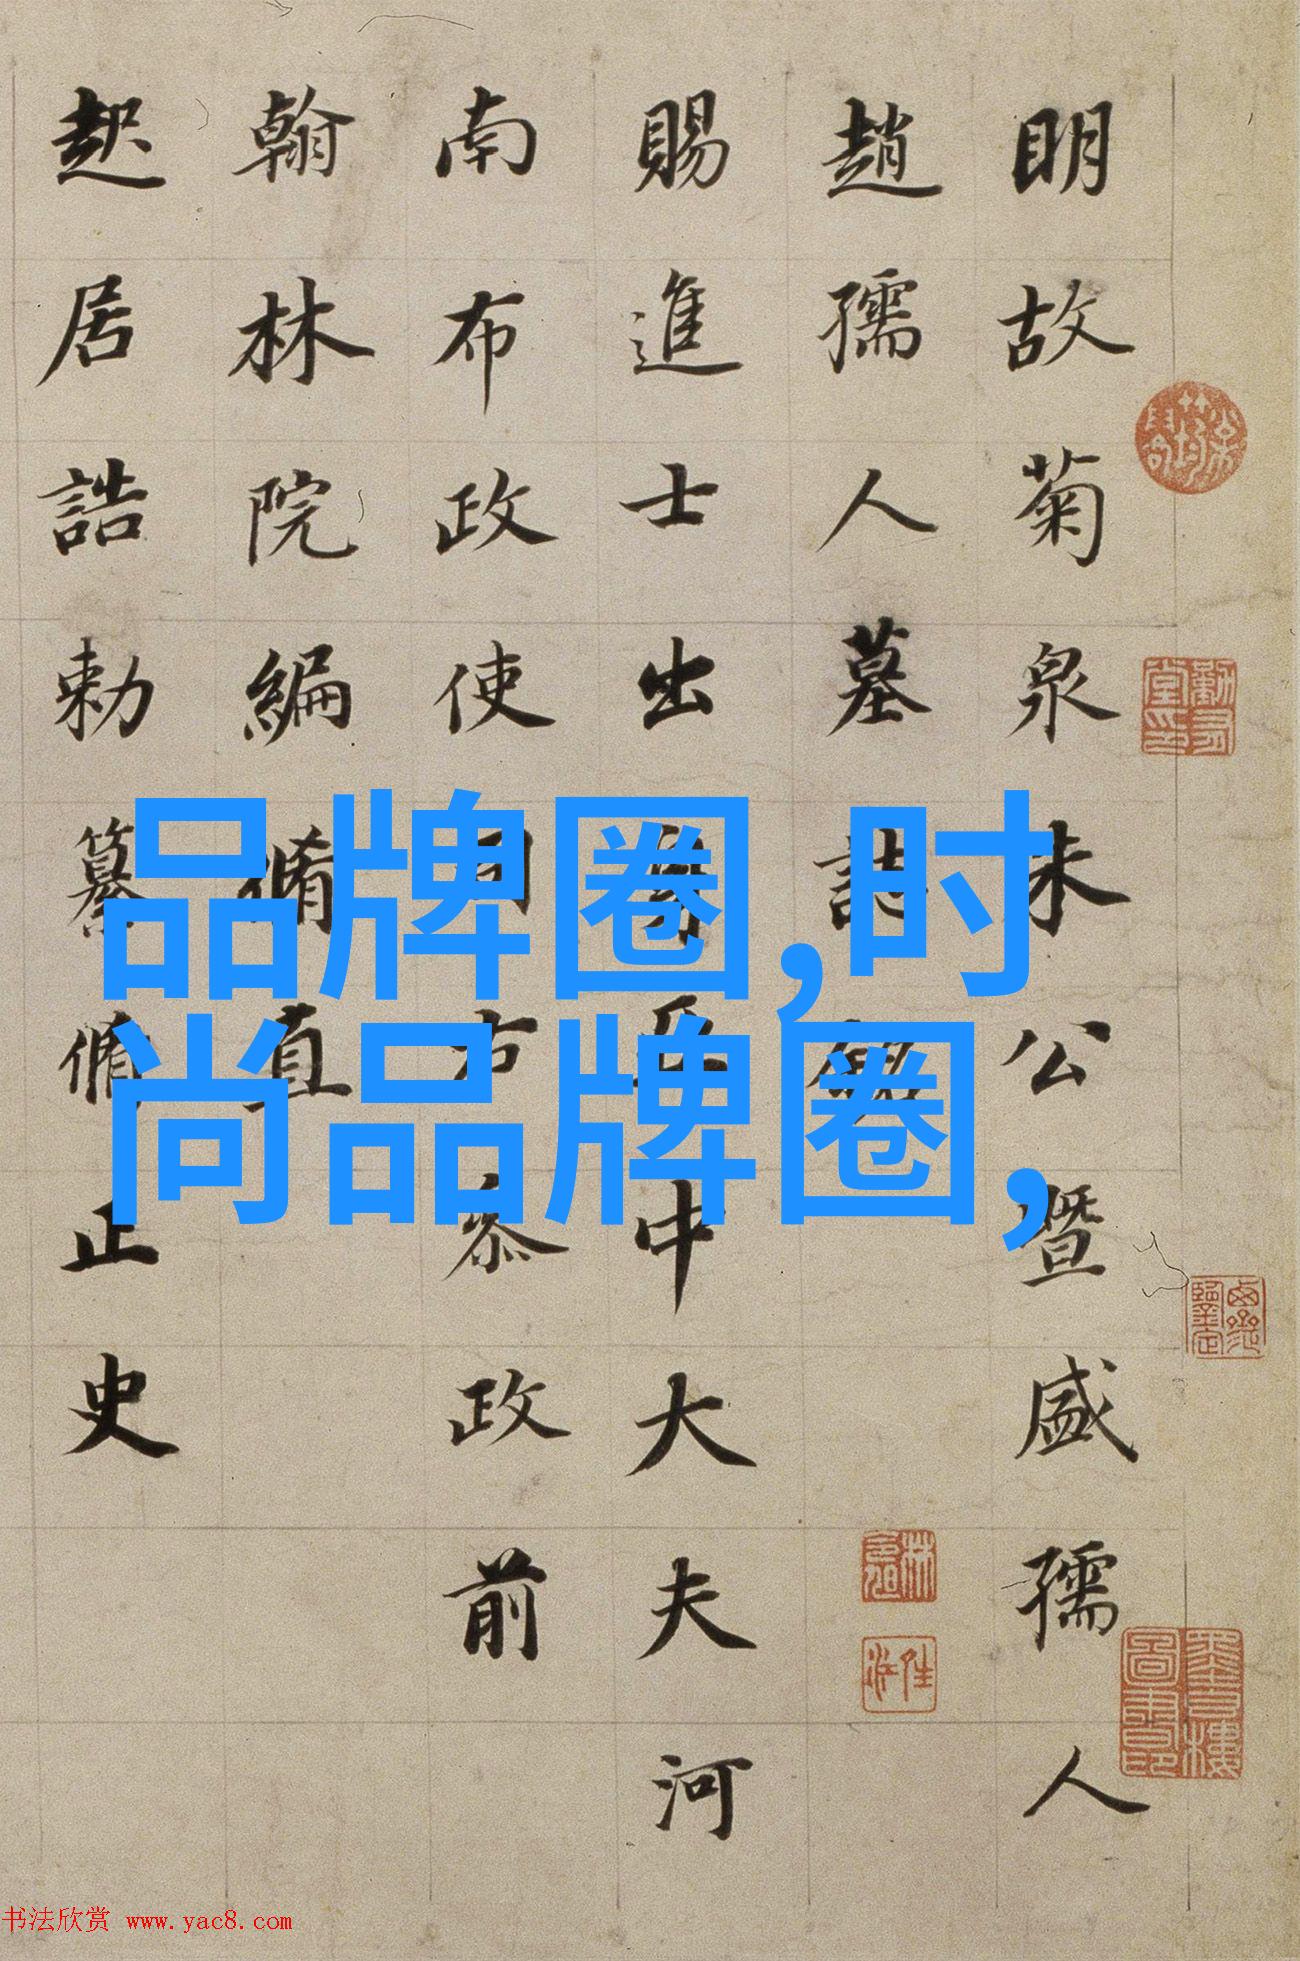 明故菊泉朱公暨盛孺人
趙孺人墓誌銘
賜進士出身亞中大夫河
南布政使司右叅政前
翰林院編脩直
起居誥勅纂脩正史
品牌圈,时
尚品牌圈,
书法欣赏 www.yac8.com